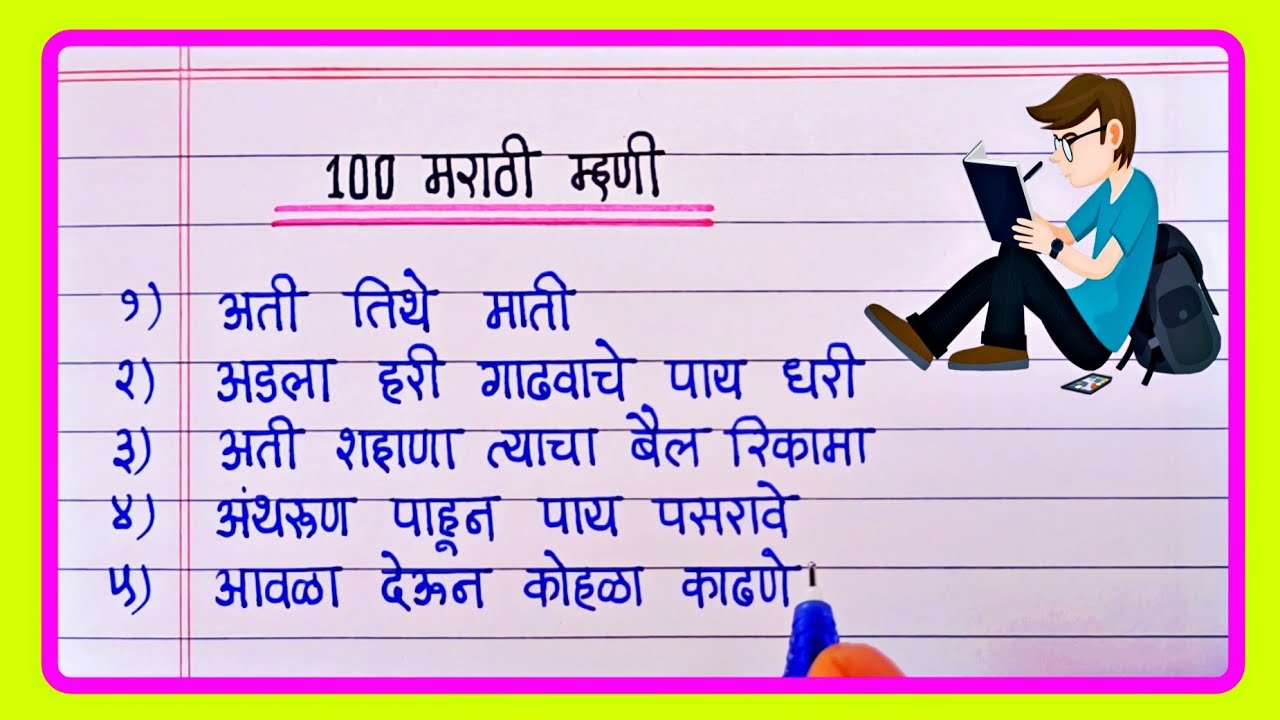 100 मराठी म्हणी
१) अती तिथे माती
२) अडला हरी गाढवाचे पाय धरी
३) अती शहाणा त्याचा बैल रिकामा
४) अंथरुण पाहून पाय पसरावे
५) आवळा देऊन कोहळा काढणे